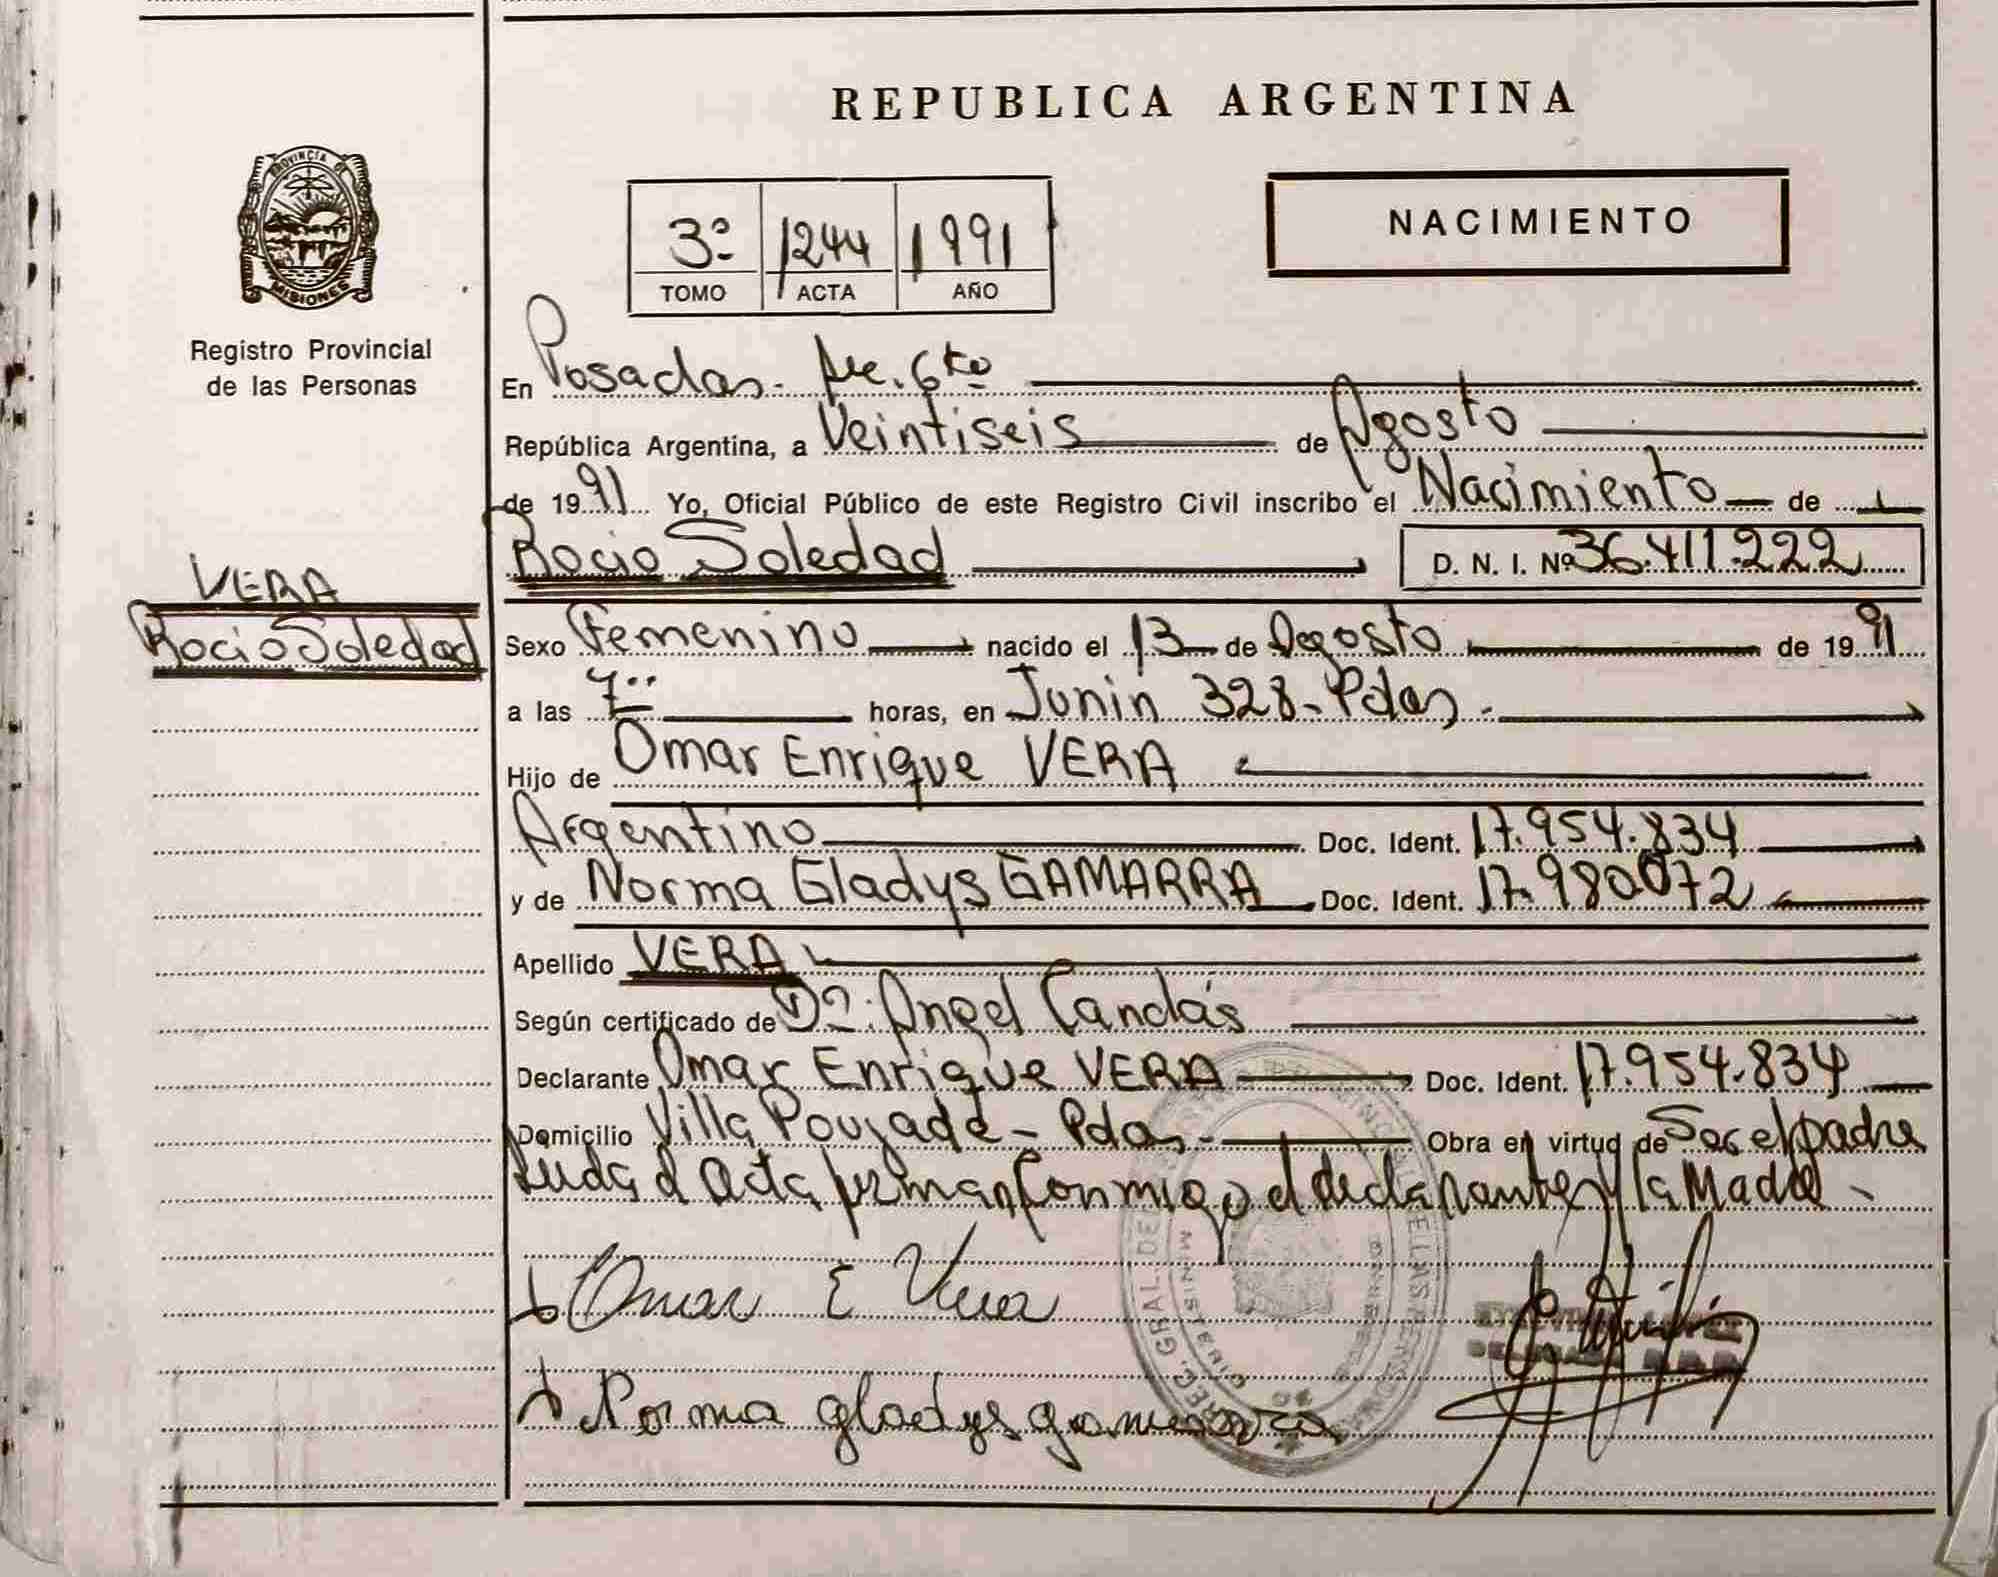 REPUBLICA ARGENTINA
PROVINCIA DE
MISIONES
Registro Provincial
de las Personas
NACIMIENTO
3º 1244 1991
TOMO ACTA AÑO
En Posadas.
República Argentina, a Veintiseis de Agosto
de 1991 Yo, Oficial Público de este Registro Civil inscribo el Nacimiento de
Rocio Soledad D. N. I. Nº 36.411.222
VERA
Rocio Soledad
Sexo Femenino nacido el 13 de Agosto de 1991
a las 7 horas, en Junin 328- Pdas.
Hijo de Omar Enrique VERA
Argentino Doc. Ident. 17.954.834
y de Norma Gladys GAMARRA Doc. Ident. 17.980.072
Apellido VERA
Según certificado de Dº: Angel Candás
Declarante Omar Enrique VERA Doc. Ident. 17.954.834
Domicilio Villa Poujade - Pdas. Obra en virtud de Ser el padre
Leida el Acta, firman Conmigo el declarante y la Madre
Omar E Vera
Norma gladys gamarra